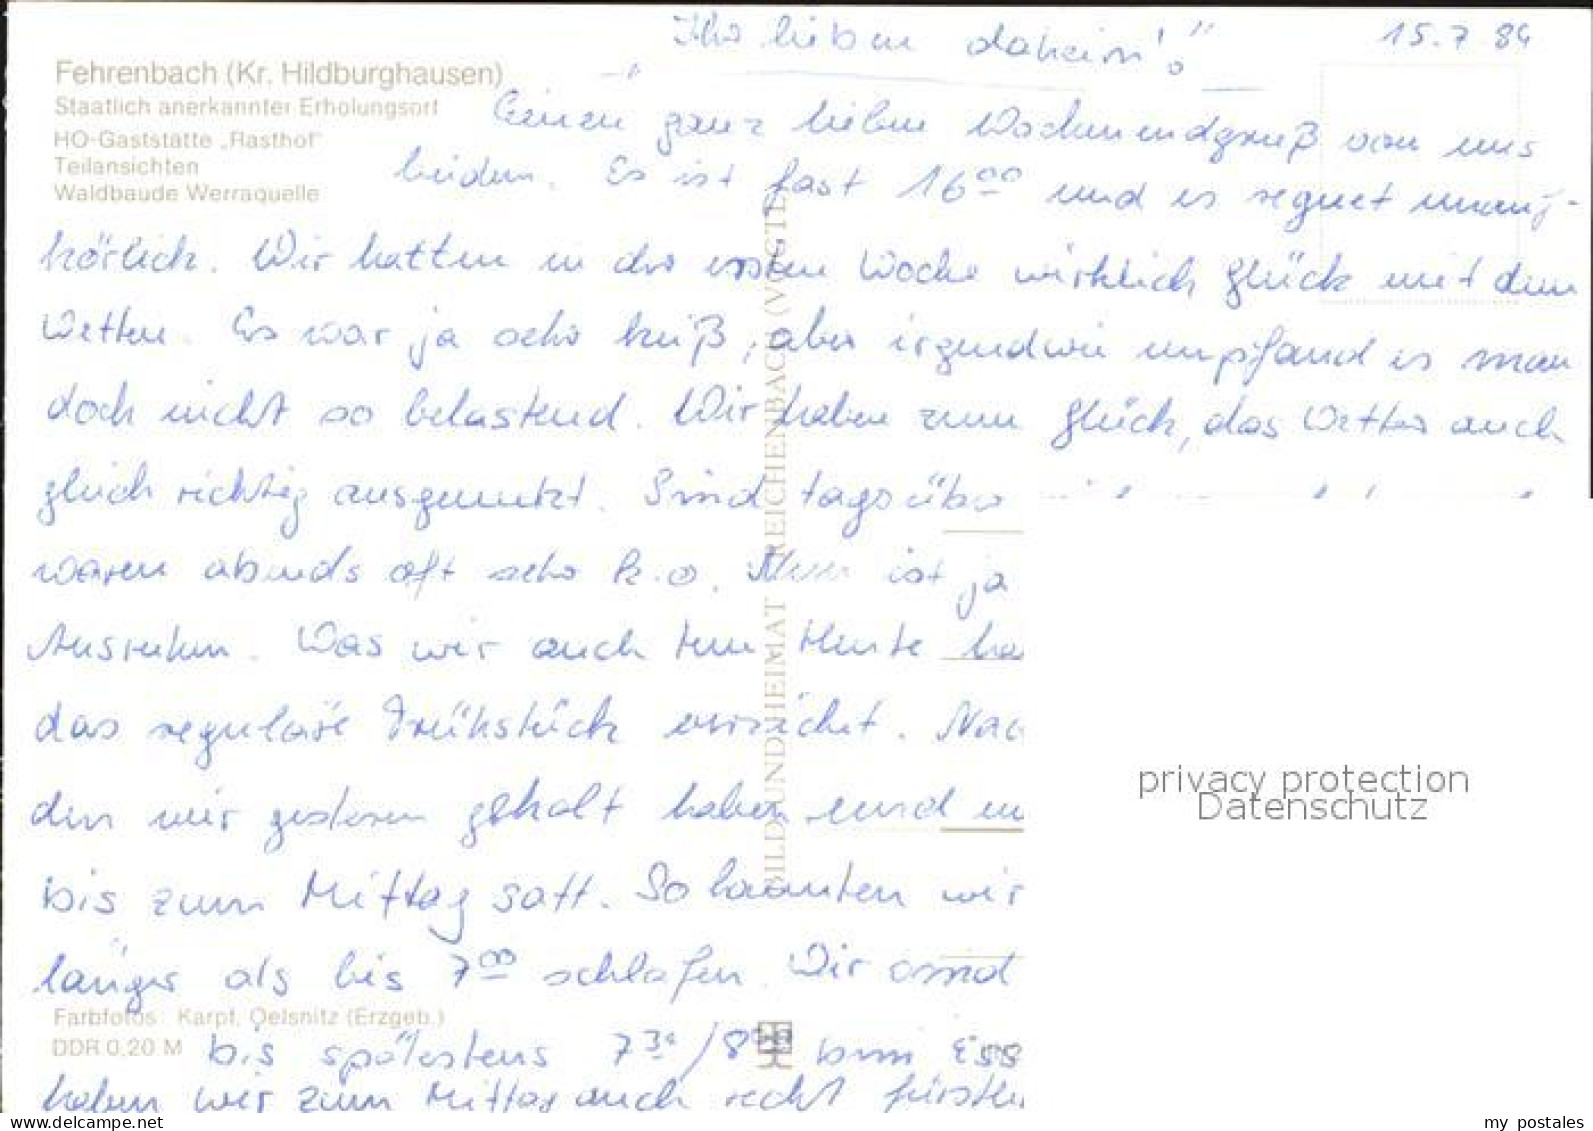 Ihr lieben daheim!" 15.7.84
Fehrenbach (Kr. Hildburghausen)
Staatlich anerkannter Erholungsort
HO-Gaststätte „Rasthof"
Teilansichten
Waldbaude Werraquelle
Einen ganz lieben Wochenendgruß von uns
beiden. Es ist fast 16⁰⁰ und es regnet unauf-
hörlich. Wir hatten in der ersten Woche wirklich Glück mit dem
Wetter. Es war ja sehr heiß, aber irgendwie empfand es man
doch nicht so belastend. Wir haben zum Glück, das Wetter auch
gleich richtig ausgenutzt. Sind tagsüber
waren abends oft sehr k.o. Nun ist ja
Ausruhen. Was wir auch tun Heute ha
das reguläre Frühstück verzichtet. Nac
den wir gestern geholt haben und
bis zum Mittag satt. So konnten wir
länger als bis 7⁰⁰ schlafen. Wir sind
Farbfotos: Karpf, Oelsnitz (Erzgeb.)
DDR 0,20 M
bis spätestens 7³⁰/8⁰⁰ beim Ess
haben wir zum Mittag auch recht fürstli
BILD UND HEIMAT REICHENBACH (VOGTL
privacy protection
Datenschutz
my postales